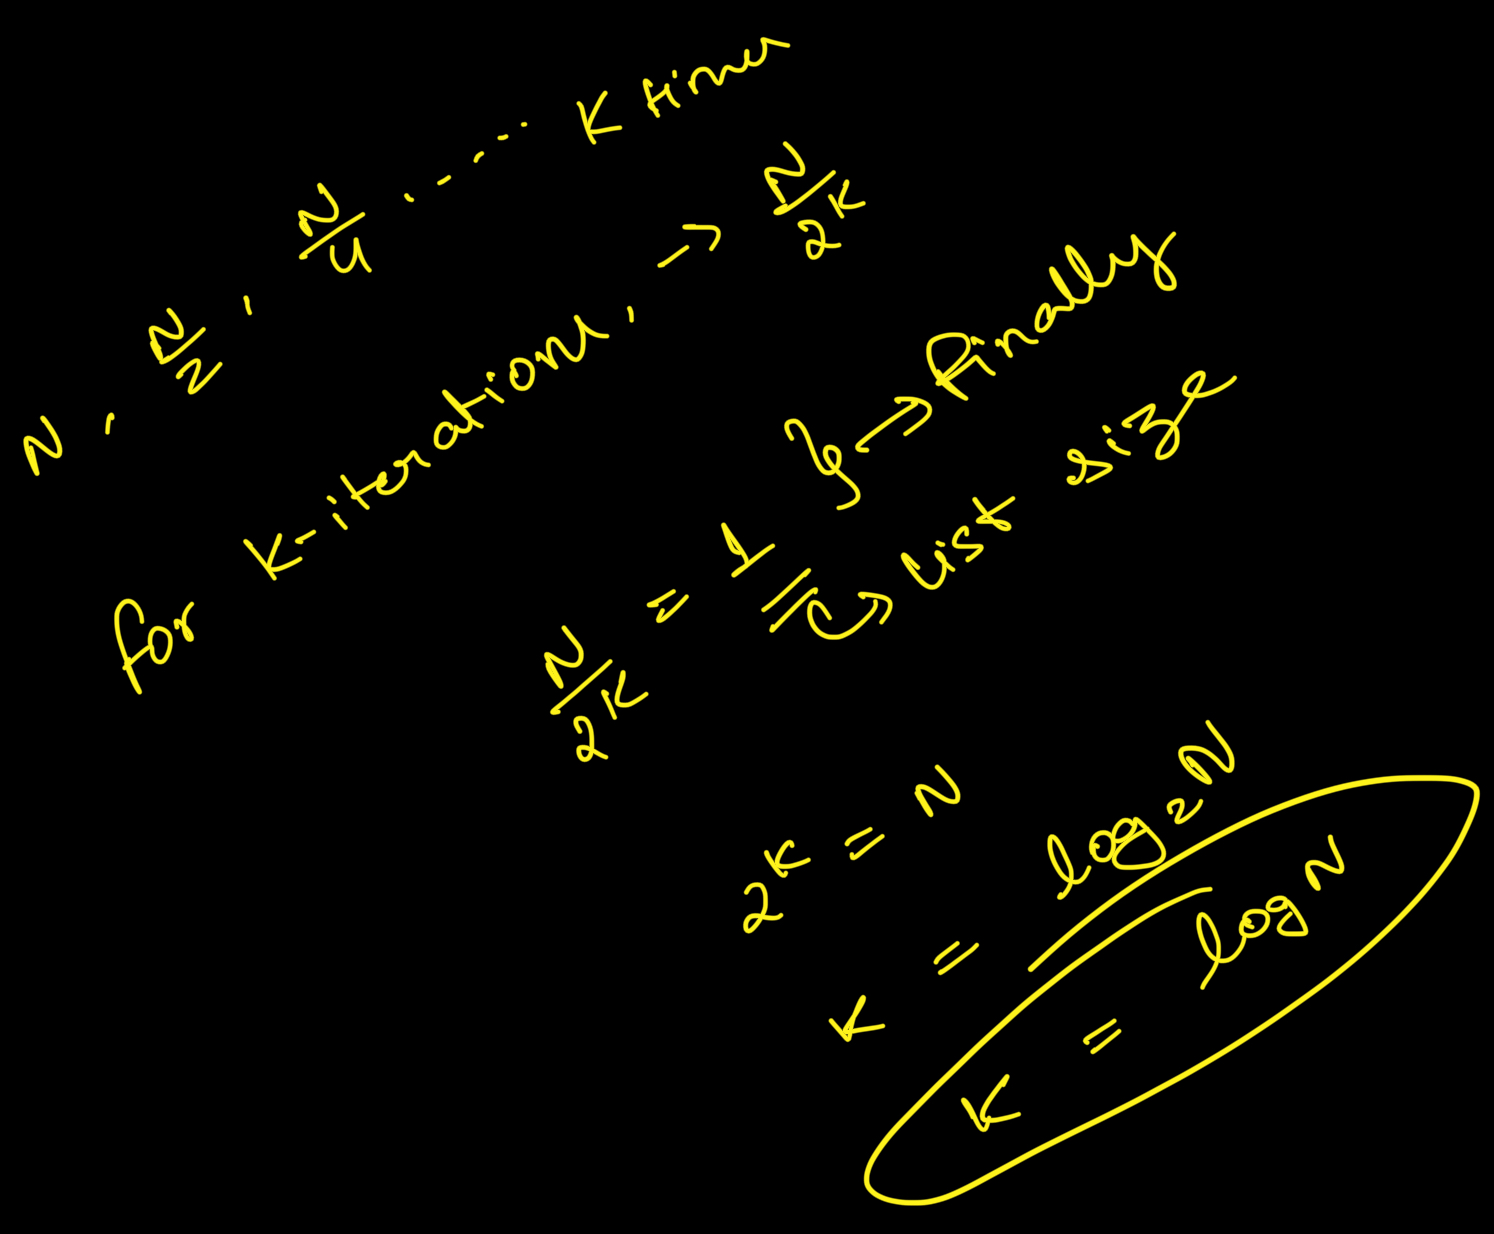 N, N/2, N/4 ........ K times
for K-iterations, → N/2^K
N/2^K = 1 } → Finally
→ list size
2^K = N
K = log₂N
K = log N